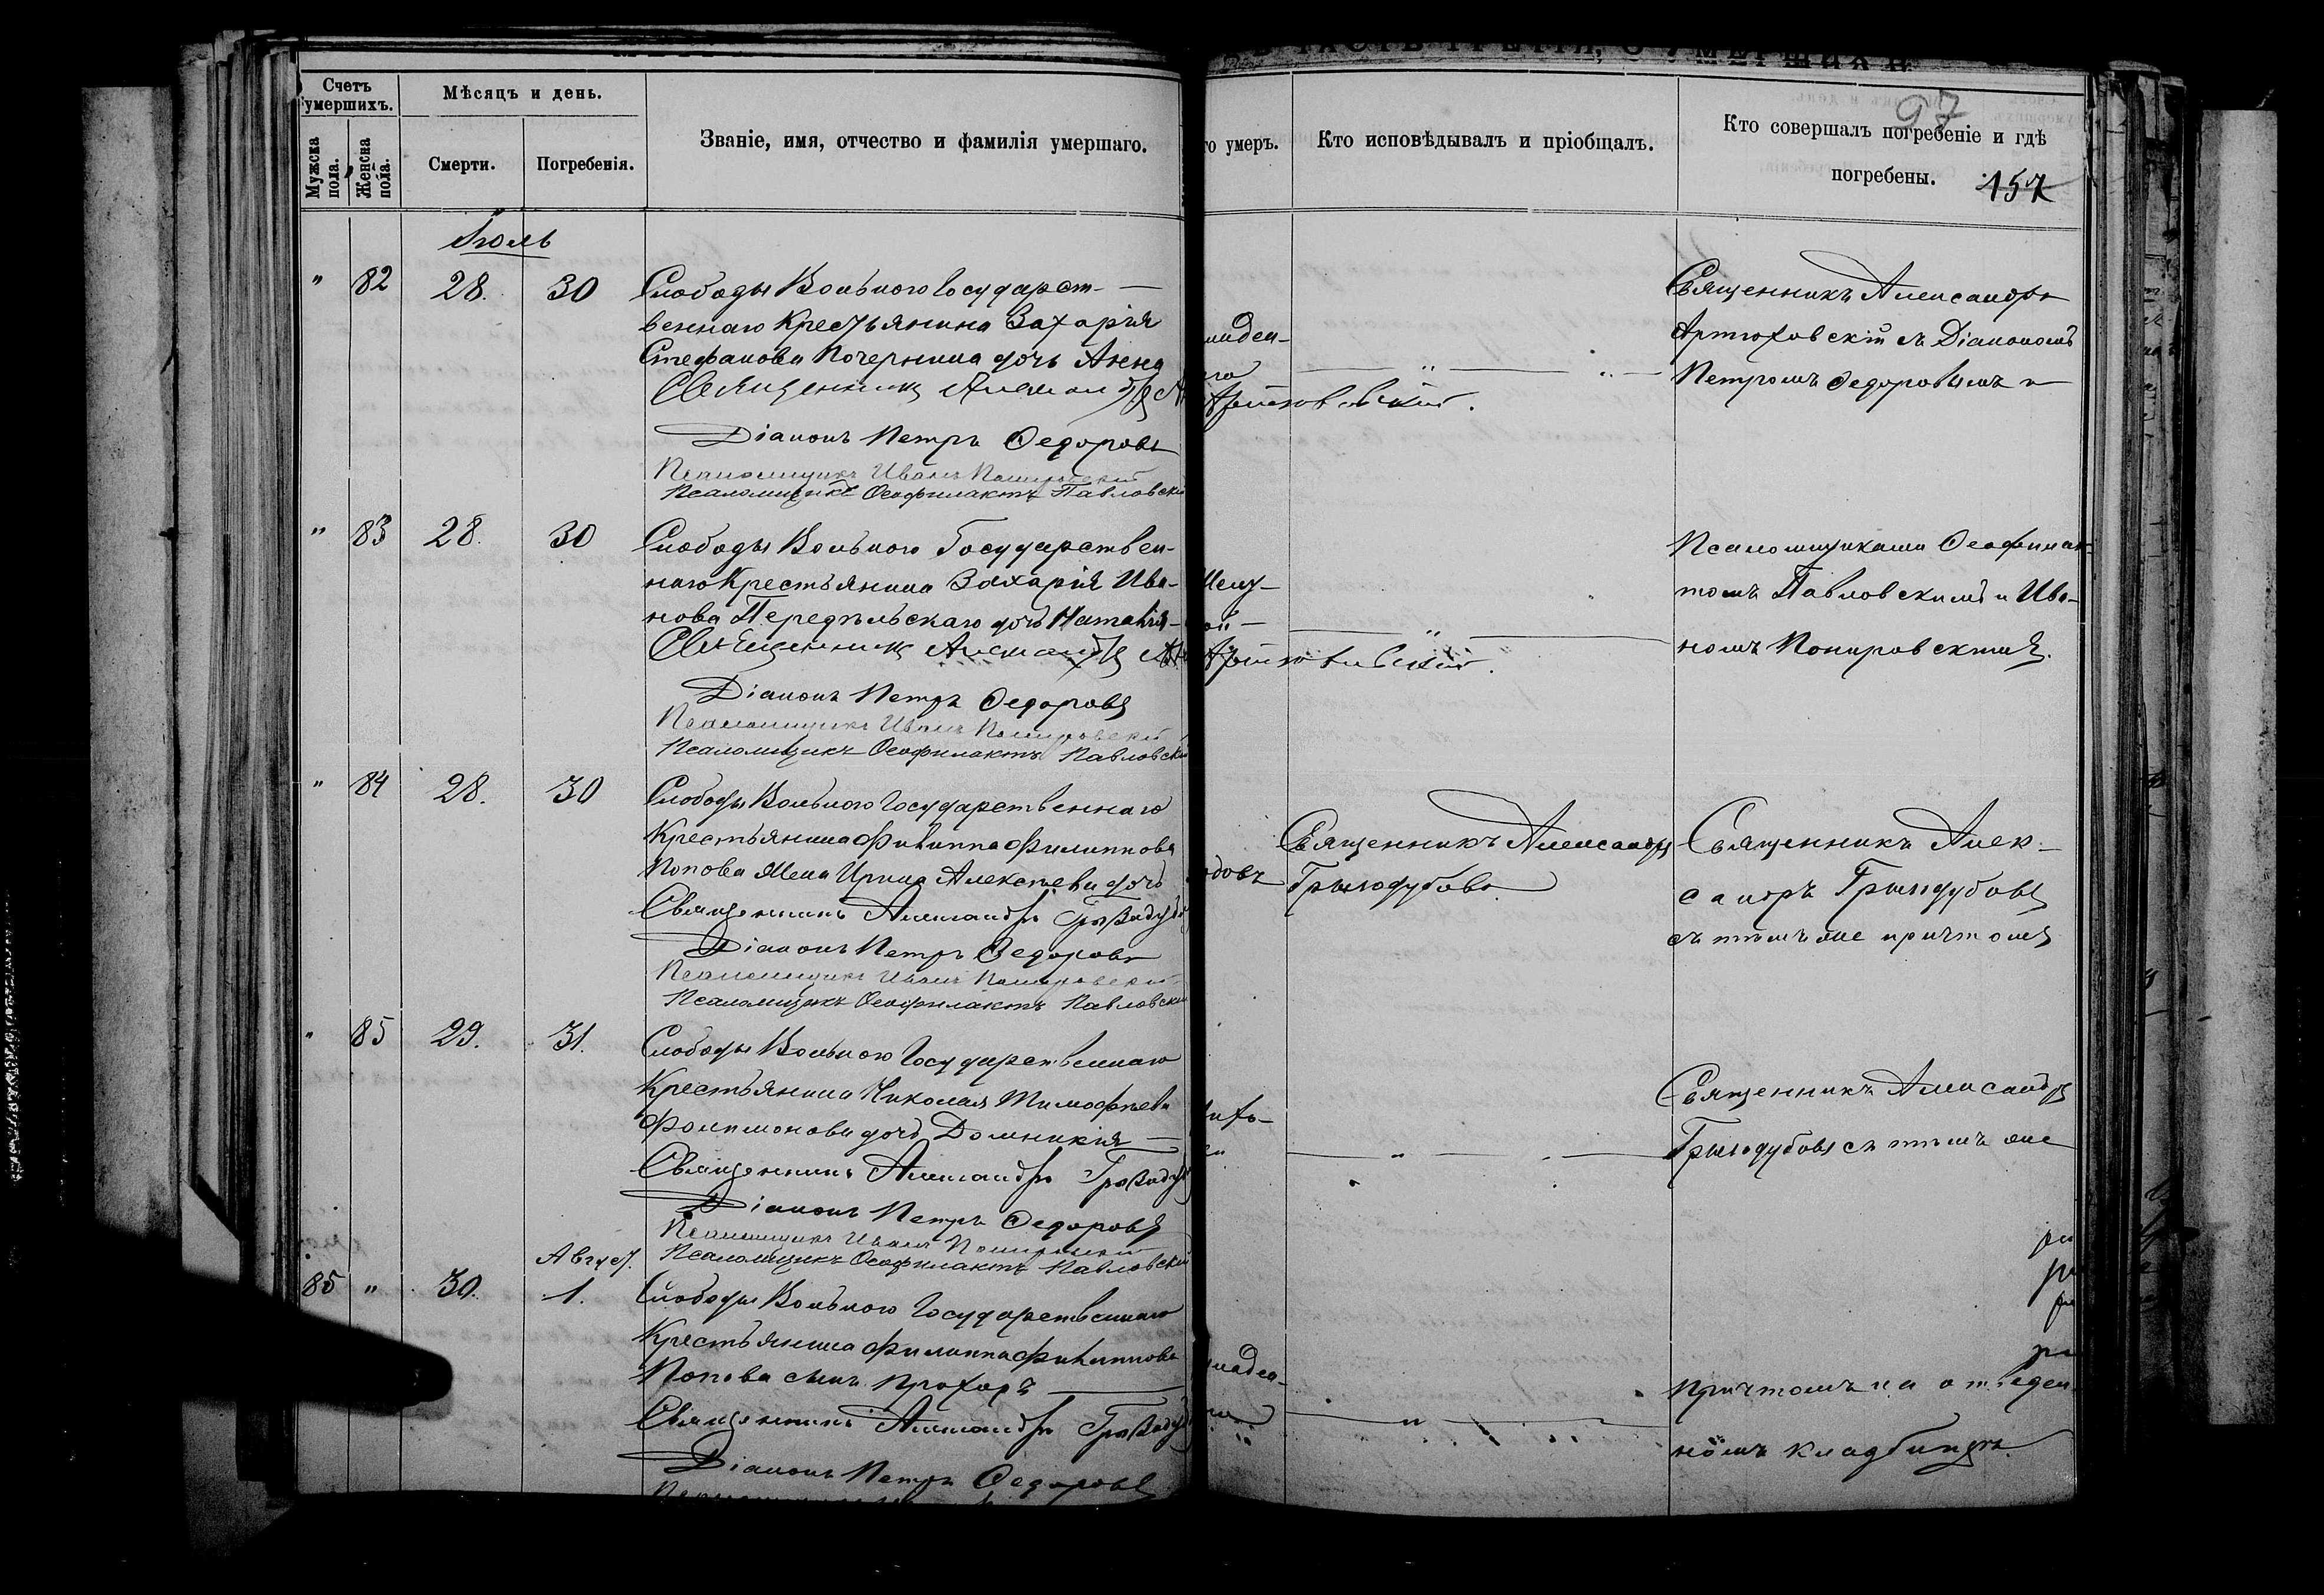 ЧАСТЬ ТРЕТІЯ, О УМЕРШИХЪ
Счетъ умершихъ.
Мужска пола.
Женска пола.
Мѣсяцъ и день.
Смерти.
Погребенія.
Званіе, имя, отчество и фамилія умершаго.
го умеръ.
Кто исповѣдывалъ и пріобщалъ.
Кто совершалъ погребеніе и гдѣ
погребены.
97
157
Іюль
" 82 28. 30 Слободы Вольного Государст-
веннаго Крестьянина Захарія
Стефанова дочь Анна
Священникъ Александръ Артюховскій.
Діаконъ Петръ Федоровъ
Псаломщикъ Иванъ
Псаломщикъ Феофилактъ Павловскій
младен-
Священникъ Александръ
Артюховскій съ Діакономъ
Петромъ Федоровымъ и
" 83 28. 30 Слободы Вольного Государствен-
наго Крестьянина Захарія Ива-
нова Передѣльскаго дочь Наталія
Священникъ Александръ Артюховскій.
Діаконъ Петръ Федоровъ
Псаломщикъ Иванъ
Псаломщикъ Феофилактъ Павловскій
Псаломщиками Феофилак-
томъ Павловскимъ и Ива-
номъ
" 84 28. 30 Слободы Вольного Государственнаго
Крестьянина Филиппа Филиппова
Попова жена Ирина Алексѣева дочь
Священникъ Александръ
Діаконъ Петръ Федоровъ
Псаломщикъ Иванъ
Псаломщикъ Феофилактъ Павловскій
одовъ
Священникъ Александръ
Грызодубовъ
Священникъ Алек-
сандръ Грызодубовъ
съ тѣмъ же причтомъ
" 85 29. 31. Слободы Вольного Государственнаго
Крестьянина Николая Тимофѣева
Филимонова дочь Домникія
Священникъ Александръ
Діаконъ Петръ Федоровъ
Псаломщикъ Иванъ
Псаломщикъ Феофилактъ Павловскій
Священникъ Александръ
Грызодубовъ съ тѣмъ же
Август.
85 " 30. 1. Слободы Вольного Государственнаго
Крестьянина Филиппа Филиппова
Попова сынъ Прохоръ
Священникъ Александръ
Діаконъ Петръ Федоровъ
младен-
причтомъ на отведен-
номъ кладбищѣ.